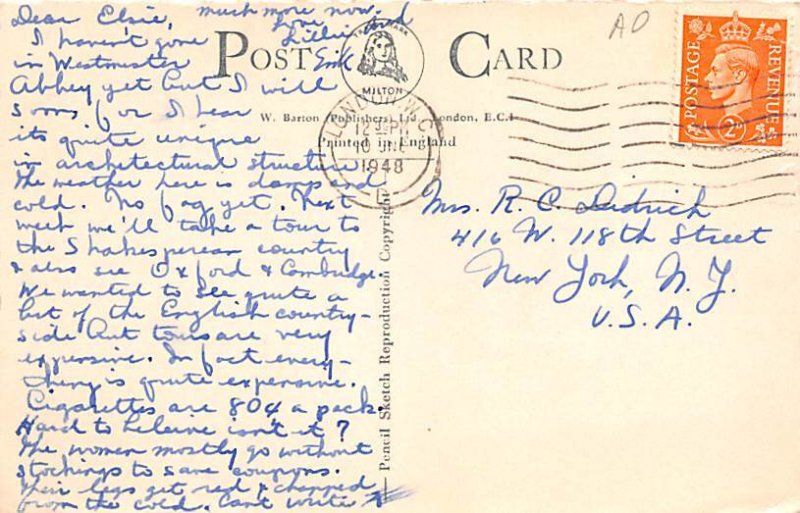 Dear Elsie,
I haven't gone
in Westminster
Abbey yet but I will
soon for I hear
its quite unique
in architectural structure
The weather here is damp and
cold. No fog yet. Next
week we'll take a tour to
the Shakesperean country
& also see Oxford & Cambridge.
We wanted to see quite a
bit of the English country-
side but tours are very
expensive. In fact every-
thing is quite expensive.
Cigarettes are 80¢ a pack.
Hard to beleive isn't it?
The women mostly go without
stockings to save coupons.
Their legs get red & chapped
from the cold. Can't write
much more now.
Love
Lillie and
Erik
POST CARD
MILTON
W. Barton (Publishers) Ltd., London, E.C.1
Printed in England
Pencil Sketch Reproduction Copyright
LONDON. W.C.
12 PM
1948
POSTAGE
REVENUE
2D
AD
Mrs. R. C. Diedrich
416 W. 118th Street
New York, N.Y.
U.S.A.